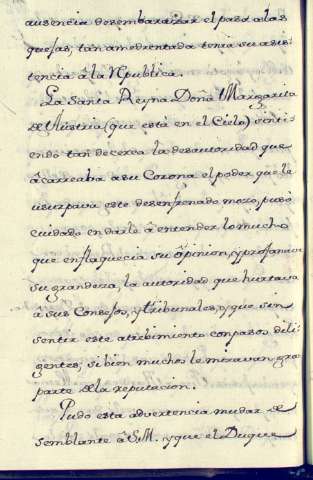 ausencia desembarazar el paso a las
quejas; tan amedrentada tenia su asis-
tencia â la Rpublica.
La Santa Reyna Doña Margarita
de Austria (que está en el Cielo) sinti-
endo tan decerca la desautoridad que
âcarreaba a su Corona el poder que le
usurpava este desenfrenado mozo, pusò
cuidado en darle â entender lo mucho
que enflaquecia su opinion, y profanava
su grandeza, la autoridad que hurtava
a sus Consejos, y tribunales, y que sin
sentir este atrebimiento con pasos dili-
gentes; si bien muchos le miravan, gran
parte de la reputacion.
Pudo esta advertencia mudar de
semblante â S.M. y que el Duque